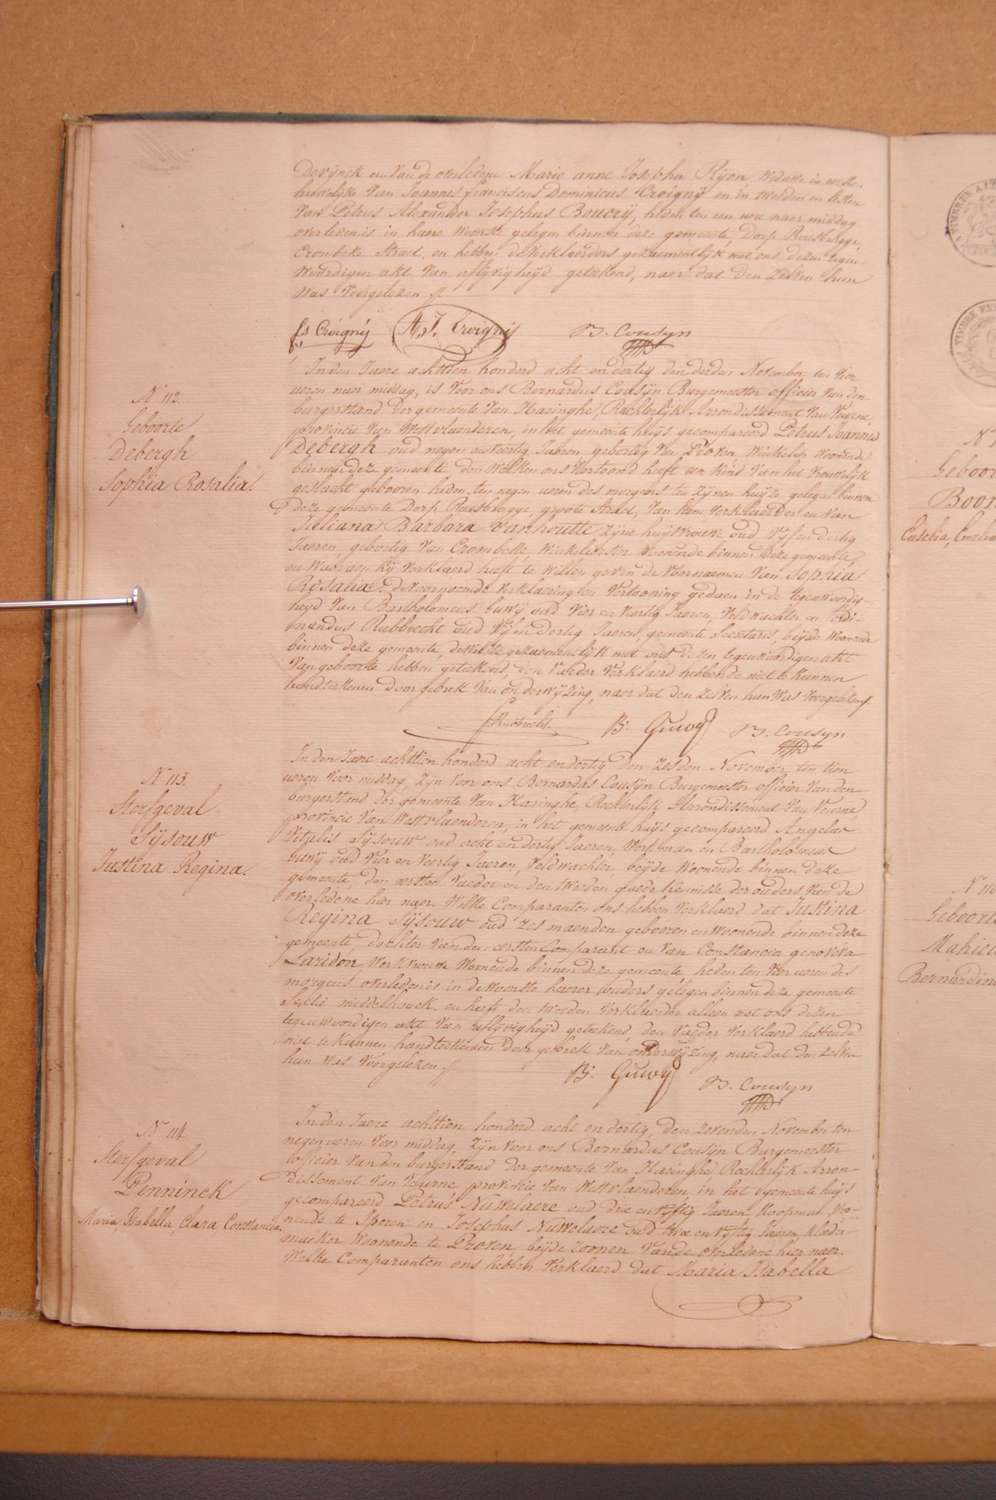 Devijnck en van de overledene Marie anne Josepha Rijon Weduwe in eerste
huwelijke van Joannes franciscus Dominicus Croigny en in tweeden en letsten
van Petrus Alexander Josephus Boucrij, heden ten een ure naer middag
overleden is in haere Woonste gelegen binnen deze gemeente, Dorp Rousbrugge,
Crombeke straet, en hebben de Verklaerders gezaementlijk met ons dezen tegen-
Woordigen akt van aflijvigheijd geteekend, naer dat den zelven hun
Was Voorgelezen
fs Croignij A. J. Croignij B. Cousyn
N. 112.
Geboorte
Debergh
Sophia Rosalia
In den Jaere achttien honderd acht en dertig den derden November ten vier
ueren naer middag, is voor ons Bernardus Cousijn Burgemeester officier van den
burgerstand der gemeente van Haringhe, Rechterlijk Arrondissement van Veurne,
provincie van Westvlaenderen, in het gemeente huijs gecompareerd Petrus Joannes
Debergh oud negen en veertig Jaeren geboortig van Proven Winkelier Woonende
binnen deze gemeente den Welken ons Vertoond heeft een kind van het Vrouwelijk
geslacht gebooren heden ten negen ueren des morgens ten zijnen huijze gelegen binnen
deze gemeente Dorp Rousbrugge, groote straet, van hem Verklaerder en van
Juliana Barbara Vanhoutte zijne huijsvrouw oud vijf en dertig
Jaeren, geboortig van Crombeke Winkelierster Woonende binnen deze gemeente
en Waer aen hij Verklaerd heeft te Willen geven de Voornaemen van Sophia
Rosalia. De voornoemde Verklaering en Vertooning gedaen in de tegenwoordig-
heyd van Bartholomeus Guwij oud vier en veertig Jaeren, Veldwachter en
Rubbrecht oud vijf en dertig Jaeren, gemeente secretaris, beijde Woonende
binnen deze gemeente, dewelke gezaementlijk met ons dezen tegenwoordigen akt
van geboorte hebben geteekend, den Vaeder Verklaerd hebbende niet te kunnen
handteekenen door gebrek van onderwijzing, naer dat den zelven hun Was Voorgelezen
Rubbrecht B. Guwij B. Cousyn
N. 113.
Sterfgeval
Sijsouw
Justina Regina.
In den Jaere achttien honderd acht en dertig den zesden November ten tien
ueren voor middag, zijn voor ons Bernardus Cousijn Burgemeester officier van den
burgerstand der gemeente van Haringhe, Rechterlijk Arrondissement van Veurne
provincie van Westvlaenderen, in het gemeente huijs gecompareerd Angelus
Vitalis Sijsouw oud acht en dertig Jaeren, Werkman en Bartholomeus
Guwij oud vier en veertig Jaeren, Veldwachter beijde Woonende binnen deze
gemeente, den eersten Vaeder en den tweeden goede kennisse der ouders van de
overledene hier naer. Welke Comparanten ons hebben Verklaerd dat Justina
Regina Sijsouw oud zes maenden gebooren en Woonende binnen deze
gemeente, dochter van den eersten Comparant en van Constancia genoveva
Laridon, Werkvrouw Woonende binnen deze gemeente, heden ten vier ueren des
morgens overleden is in de Woonste haerer ouders gelegen binnen deze gemeente
Sectie middelhoek, en heeft den tweeden Verklaerder alleen met ons dezen
tegenwoordigen akt van aflijvigheijd geteekend, den Vaeder Verklaerd hebbende
niet te kunnen handteekenen door gebrek van onderwijzing, naer dat den zelven
hun Was Voorgelezen
B. Guwij B. Cousyn
N. 114
Sterfgeval
Penninck
Maria Isabella, Clara Constantia
In den Jaere achttien honderd acht en dertig, den zevenden November ten
negen ueren voor middag, zijn voor ons Bernardus Cousijn Burgemeester
officier van den burgerstand der gemeente van Haringhe, Rechterlijk Arron-
dissement van Veurne provincie van Westvlaenderen, in het gemeente huijs
gecompareerd Petrus Nuwelaere oud drie en vijftig Jaeren Koopman, Wo-
nende te Yperen en Josephus Nuwelaere oud twee en vijftig Jaeren, Kleer-
maeker Woonende te Proven, beijde zoonen van de overledene hier naer.
Welke Comparanten ons hebben Verklaerd dat Maria Isabella
Geboor
Boon
Geboorte
Mahieu
Bernardin